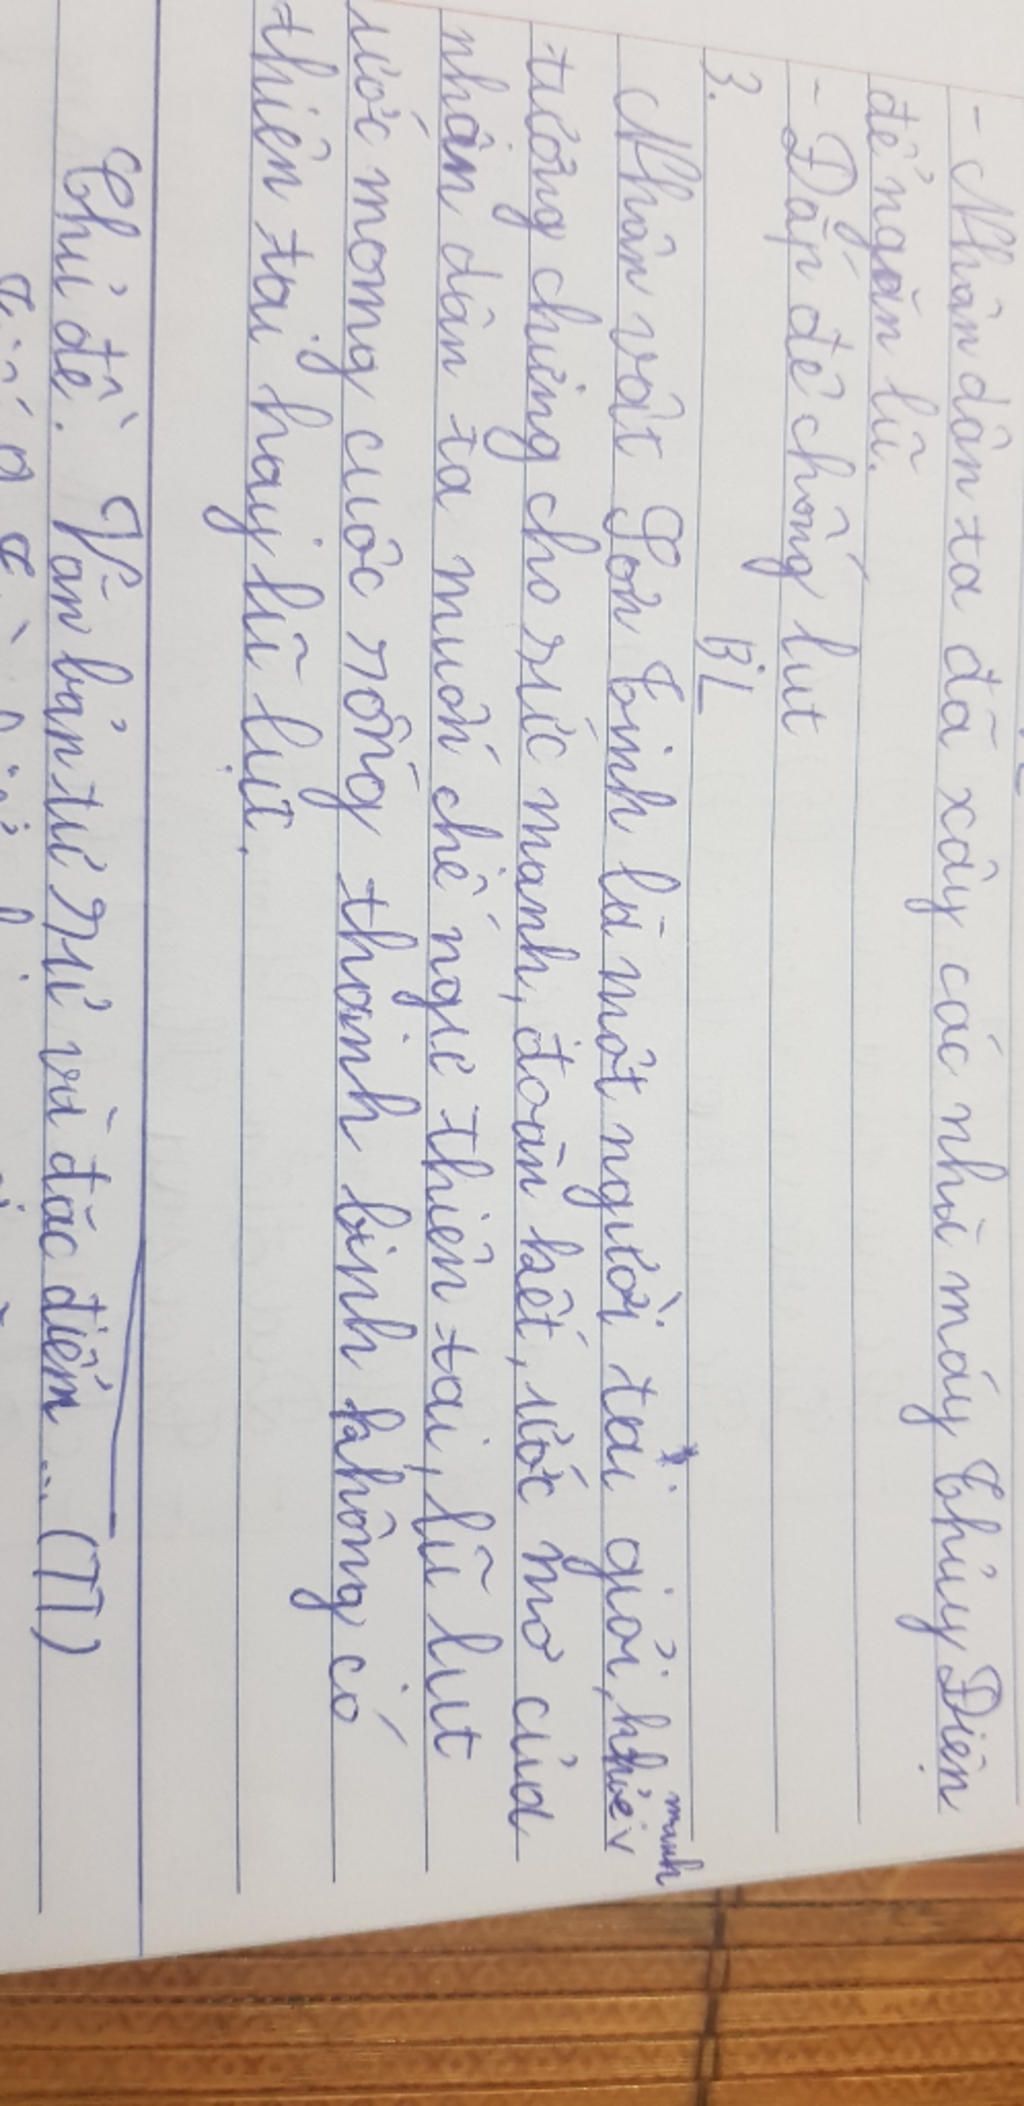 - Nhân dân ta đã xây các nhà máy Thủy Điện
để ngăn lũ.
- Đắp đê chống lụt
3. BL
Nhân vật Sơn Tinh là một người tài giỏi, khỏe mạnh
tượng chưng cho sức mạnh, đoàn kết, ước mơ của
nhân dân ta muốn chế ngự thiên tai, lũ lụt
ước mong cuộc sống thanh bình không có
thiên tai hay lũ lụt.
Chủ đề. Văn bản tự sự và đặc điểm... (T1)